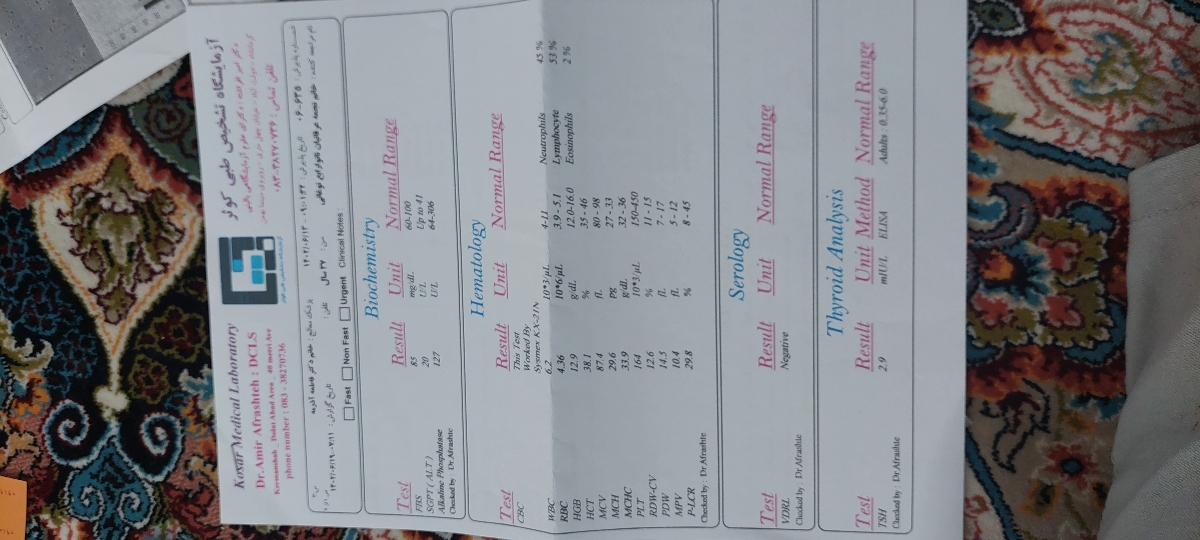 Kosar Medical Laboratory
آزمایشگاه تشخیص طبی کوثر
Dr.Amir Afrashteh : DCLS
Kermanshah
phone number : 083 - 38270736
تلفن تماس : ۳۸۲۷۰۷۳۶-۰۸۳
Fast Non Fast Urgent Clinical Notes :
Biochemistry
Test Result Unit Normal Range
FBS 85 mg/dl. 60-100
SGPT ( ALT ) 20 U/L Up to 41
Alkaline Phosphatase 127 U/L 64-306
Checked by : Dr Afrashte
Hematology
Test Result Unit Normal Range
CBC This Test
Worked By
Sysmex KX-21N
WBC 6.2 10*3/µL 4-11 Neutrophils 45 %
RBC 4.36 10*6/µL 3.9 - 5.1 Lymphocyte 53 %
HGB 12.9 g/dL 12.0-16.0 Eosinophils 2 %
HCT 38.1 % 35 - 46
MCV 87.4 fL 80 - 98
MCH 29.6 pg 27 - 33
MCHC 33.9 g/dL 32 - 36
PLT 164 10*3/µL 150-450
RDW-CV 12.6 % 11 - 15
PDW 14.5 fL 7 - 17
MPV 10.4 fL 5 - 12
P-LCR 29.8 % 8 - 45
Checked by : Dr Afrashte
Serology
Test Result Unit Normal Range
VDRL Negative
Checked by : Dr Afrashte
Thyroid Analysis
Test Result Unit Method Normal Range
TSH 2.9 mIU/L ELISA Adults : 0.35-6.0
Checked by : Dr Afrashte